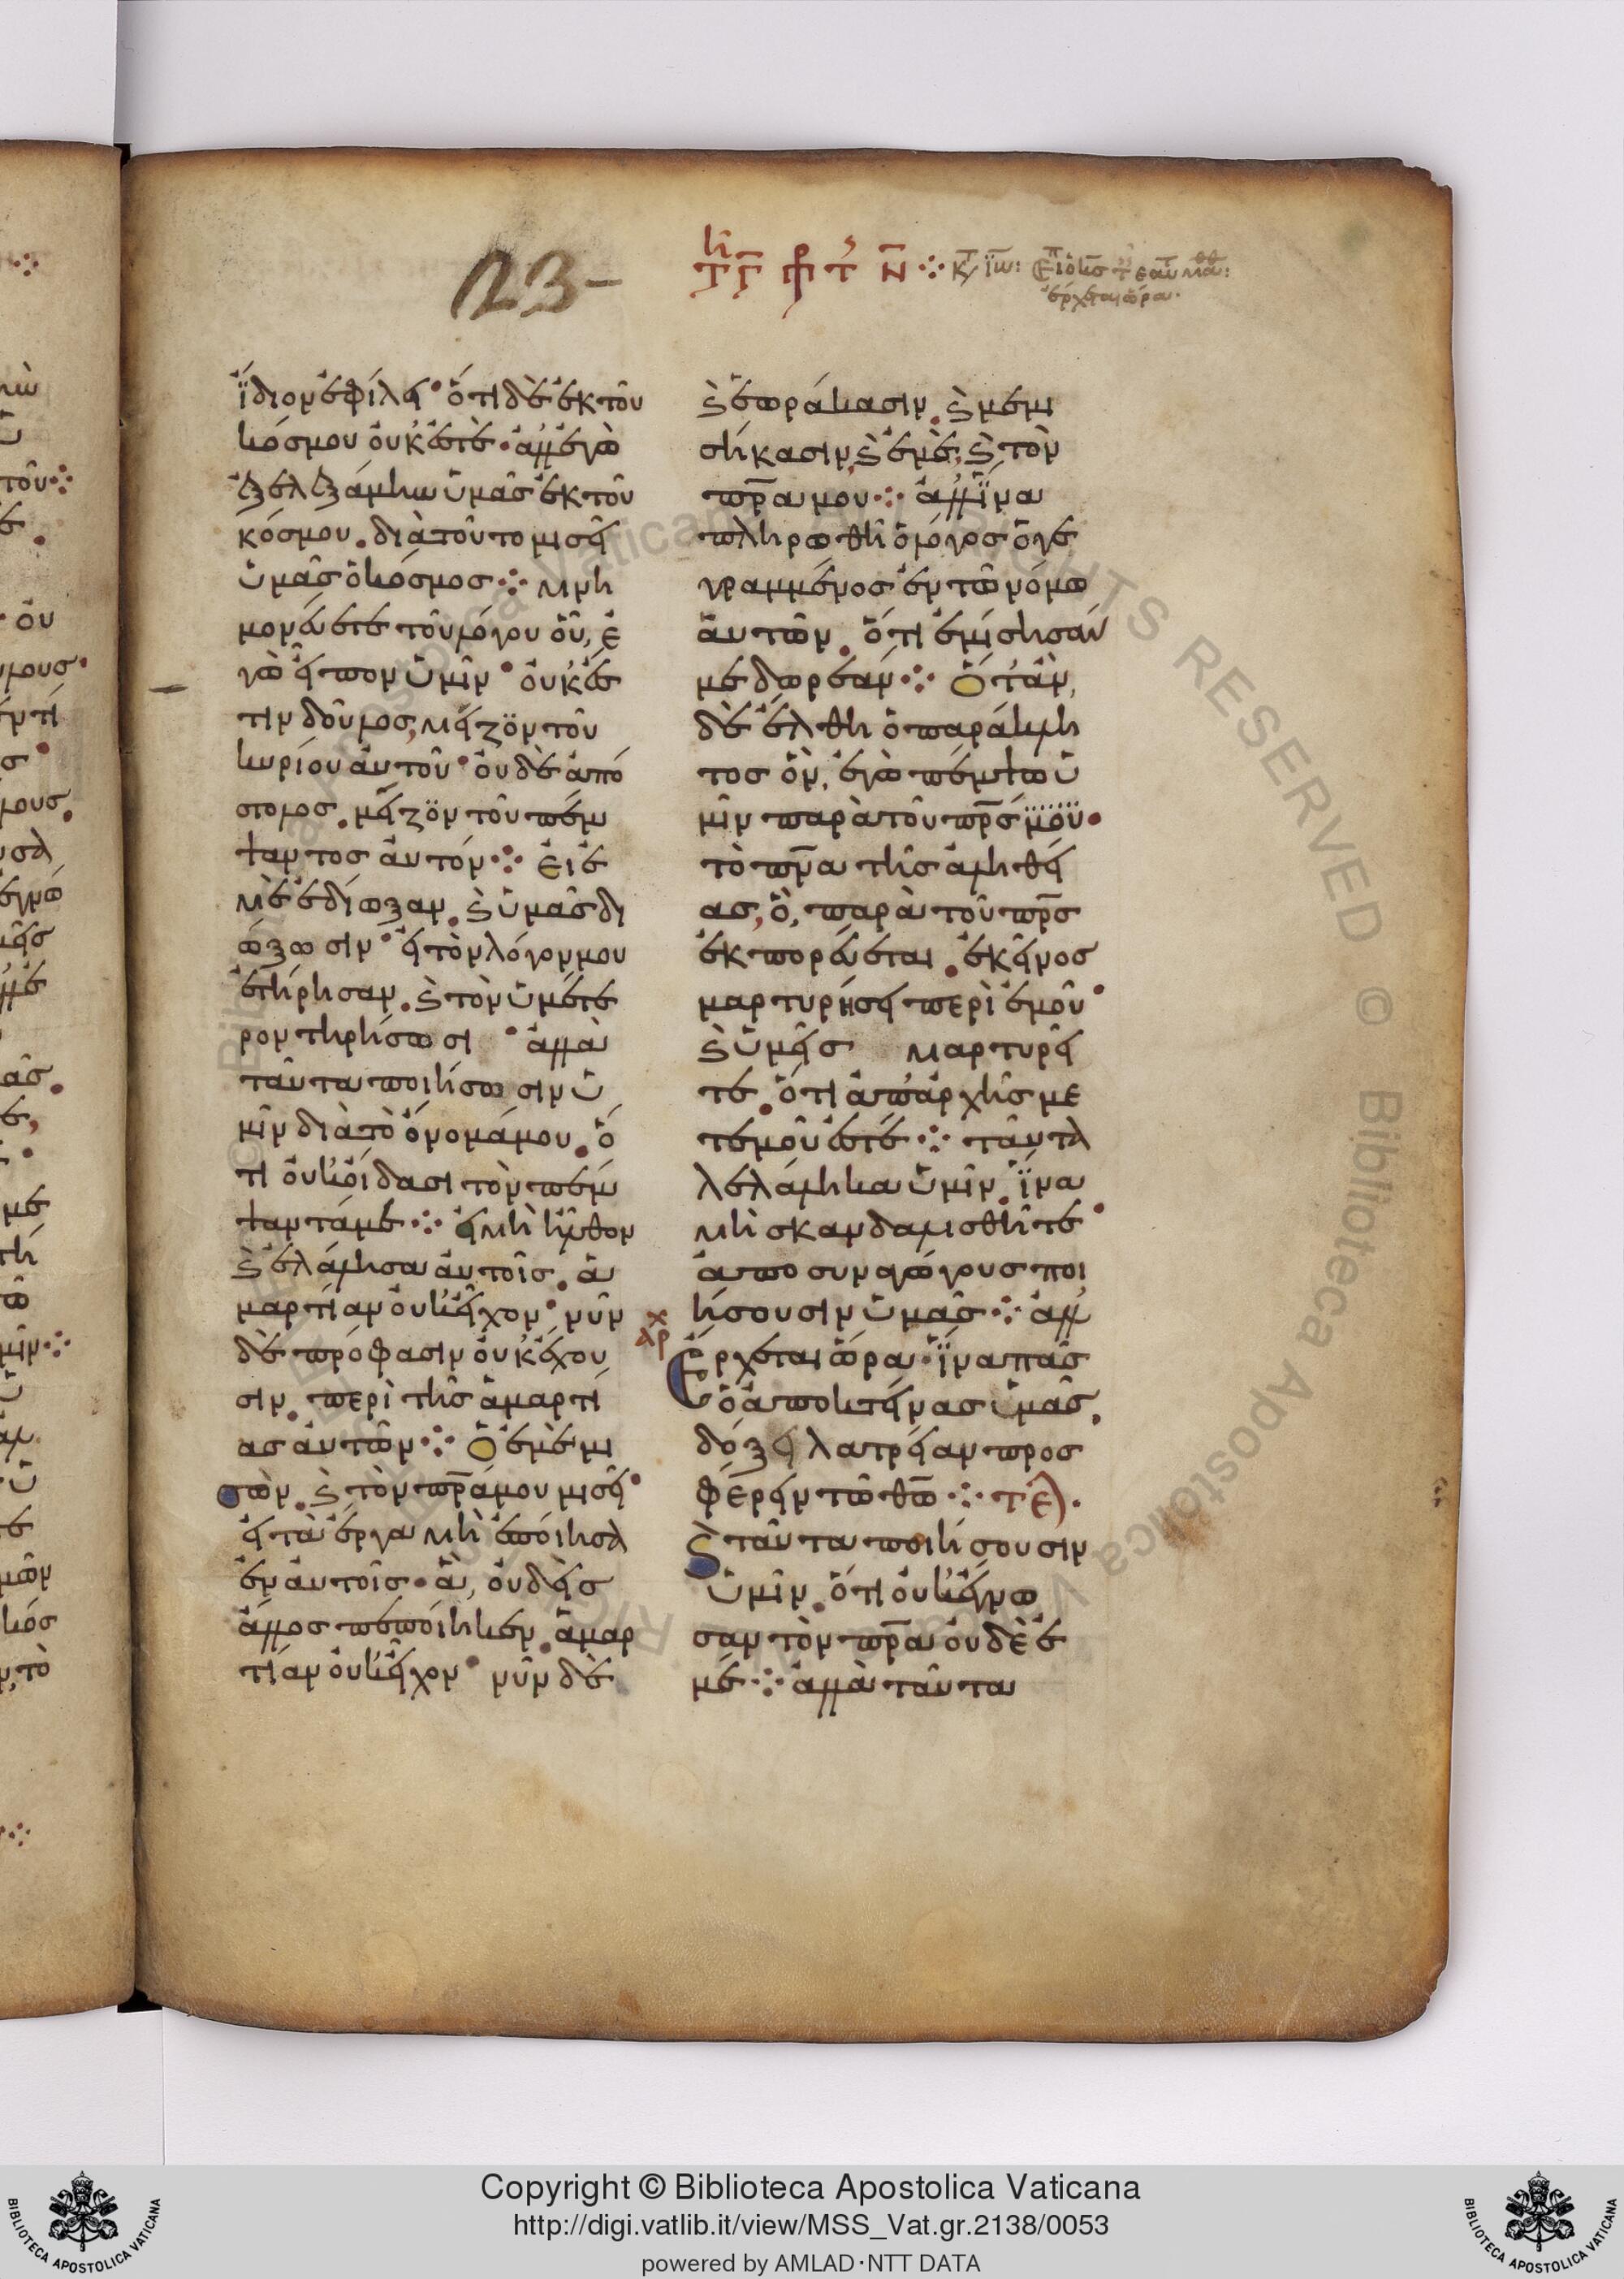 23-
τῇ γ̅ τῆς ν̅ ⁘ κ̅τ ϊω̅:
ἔρχεται ὥρα·
ἴδιον ἐφίλει· ὅτι δὲ ἐκ τοῦ
κόσμου οὐκ ἐστὲ· ἀλλ' ἐγὼ
ἐξελεξάμην ὑμᾶς ἐκ τοῦ
κόσμου. διὰ τοῦτο μισεῖ
ὑμᾶς ὁ κόσμος ⁘ μνη
μονεύετε τοῦ λόγου οὗ, ἐ
γὼ εἶπον ὑμῖν· οὐκ ἔσ
τιν δοῦλος, μείζον τοῦ
κυρίου αὐτοῦ· οὐδὲ ἀπό
στολος. μείζον τοῦ πέμ
ψαντος αὐτόν ⁘ εἰ ἐ
μὲ ἐδίωξαν. καὶ ὑμᾶς δι
ώξωσιν· εἰ τὸν λόγον μου
ἐτήρησαν. καὶ τὸν ὑμέτε
ρον τηρήσωσι · ἀλλὰ
ταῦτα ποιήσωσιν ὑ
μῖν διὰ τὸ ὄνομά μου. ὅ
τι οὐκ οἴδασι τὸν πέμ
ψαντά με ⁘ εἰ μὴ ἦλθον
καὶ ἐλάλησα αὐτοῖς. ἁ
μαρτίαν οὐκ εἶχον· νῦν
δὲ πρόφασιν οὐκ ἔχου
σιν. περὶ τῆς ἁμαρτί
ας αὐτῶν ⁘ Ὁ ἐμὲ μι
σῶν. καὶ τὸν πρ̅α μου μισεῖ·
εἰ τὰ ἔργα μὴ ἐποίησα
ἐν αὐτοῖς· ἃ, οὐδεὶς
ἄλλος πεποίηκεν. ἁμαρ
τίαν οὐκ εἶχον· νῦν δὲ
καὶ ἑωράκασιν. καὶ μεμι
σήκασιν, καὶ ἐμὲ, καὶ τὸν
πρ̅α μου ⁘ ἀλλ' ἵνα
πληρωθῆ ὁ λόγος ὁ γε
γραμμένος ἐν τῶ νόμω
αὐτῶν. ὅτι ἐμίσησάν
με δωρεάν ⁘ Ὅταν,
δὲ ἔλθη ὁ παράκλη
τος ὃν, ἐγὼ πέμψω ὑ
μῖν παρὰ τοῦ πρ̅ς μου·
τὸ πν̅α τῆς ἀληθεί
ας, ὃ, παρὰ τοῦ πρ̅ς
ἐκπορεύεται. ἐκεῖνος
μαρτυρήσει περὶ ἐμοῦ·
καὶ ὑμεῖς μαρτυρεῖ
τε. ὅτι ἀπ' ἀρχῆς με
τ' ἐμοῦ ἐστέ ⁘ ταῦτα
λελάληκα ὑμῖν. ἵνα
μὴ σκανδαλισθῆτε·
ἀποσυναγώγους ποι
ήσουσιν ὑμᾶς ⁘ ἀλλ'
αρχ
Ἔρχεται ὥρα· ἵνα πᾶς
ὁ ἀποκτείνας ὑμᾶς,
δόξει λατρείαν προσ
φέρειν τῶ θ̅ω ⁘ τε).
καὶ ταῦτα ποιήσουσιν
ὑμῖν. ὅτι οὐκ ἔγνω
σαν τὸν πρ̅α οὐδὲ ἐ
μέ ⁘ ἀλλὰ ταῦτα
Copyright © Biblioteca Apostolica Vaticana
http://digi.vatlib.it/view/MSS_Vat.gr.2138/0053
powered by AMLAD·NTT DATA
BIBLIOTECA APOSTOLICA VATICANA
BIBLIOTECA APOSTOLICA VATICANA